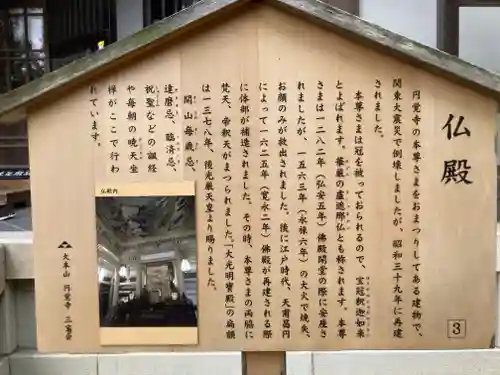 仏殿
円覚寺の本尊さまをおまつりしてある建物で、
関東大震災で倒壊しましたが、昭和三十九年に再建
されました。
本尊さまは冠を被っておられるので、宝冠釈迦如来
とよばれます。華厳の盧遮那仏とも称されます。本尊
さまは一二八二年(弘安五年)仏殿開堂の際に安座さ
れましたが、一五六三年(永禄六年)の大火で焼失、
お顔のみが救出されました。後に江戸時代、天甫昌円
によって一六二五年(寛永二年)仏殿が再建される際
に体部が補造されました。その時、本尊さまの両脇に
梵天、帝釈天がまつられました。「大光明寶殿」の扁額
は一三七八年、後光厳天皇より賜りました。
開山毎歳忌、
達磨忌、臨済忌、
祝聖などの諷経
や毎朝の暁天坐
禅がここで行わ
れています。
仏殿内
大本山 円覚寺 三富会
3